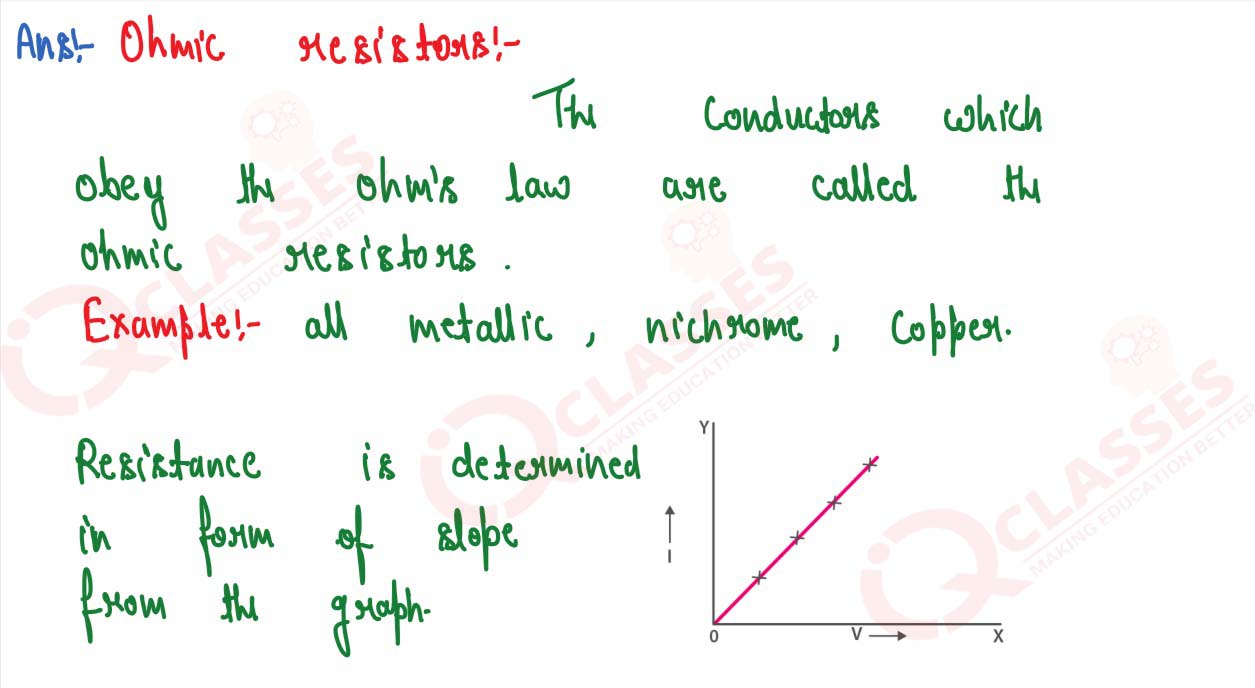 Ans:- Ohmic resistors:-
The Conductors which
obey the ohm's law are called the
ohmic resistors.
Example:- all metallic, nichrome, Copper.
Resistance is determined
in form of slope
from the graph.
Y
I
0 V X
IQ CLASSES
MAKING EDUCATION BETTER
IQ CLASSES
MAKING EDUCATION BETTER
IQ CLASSES
MAKING EDUCATION BETTER